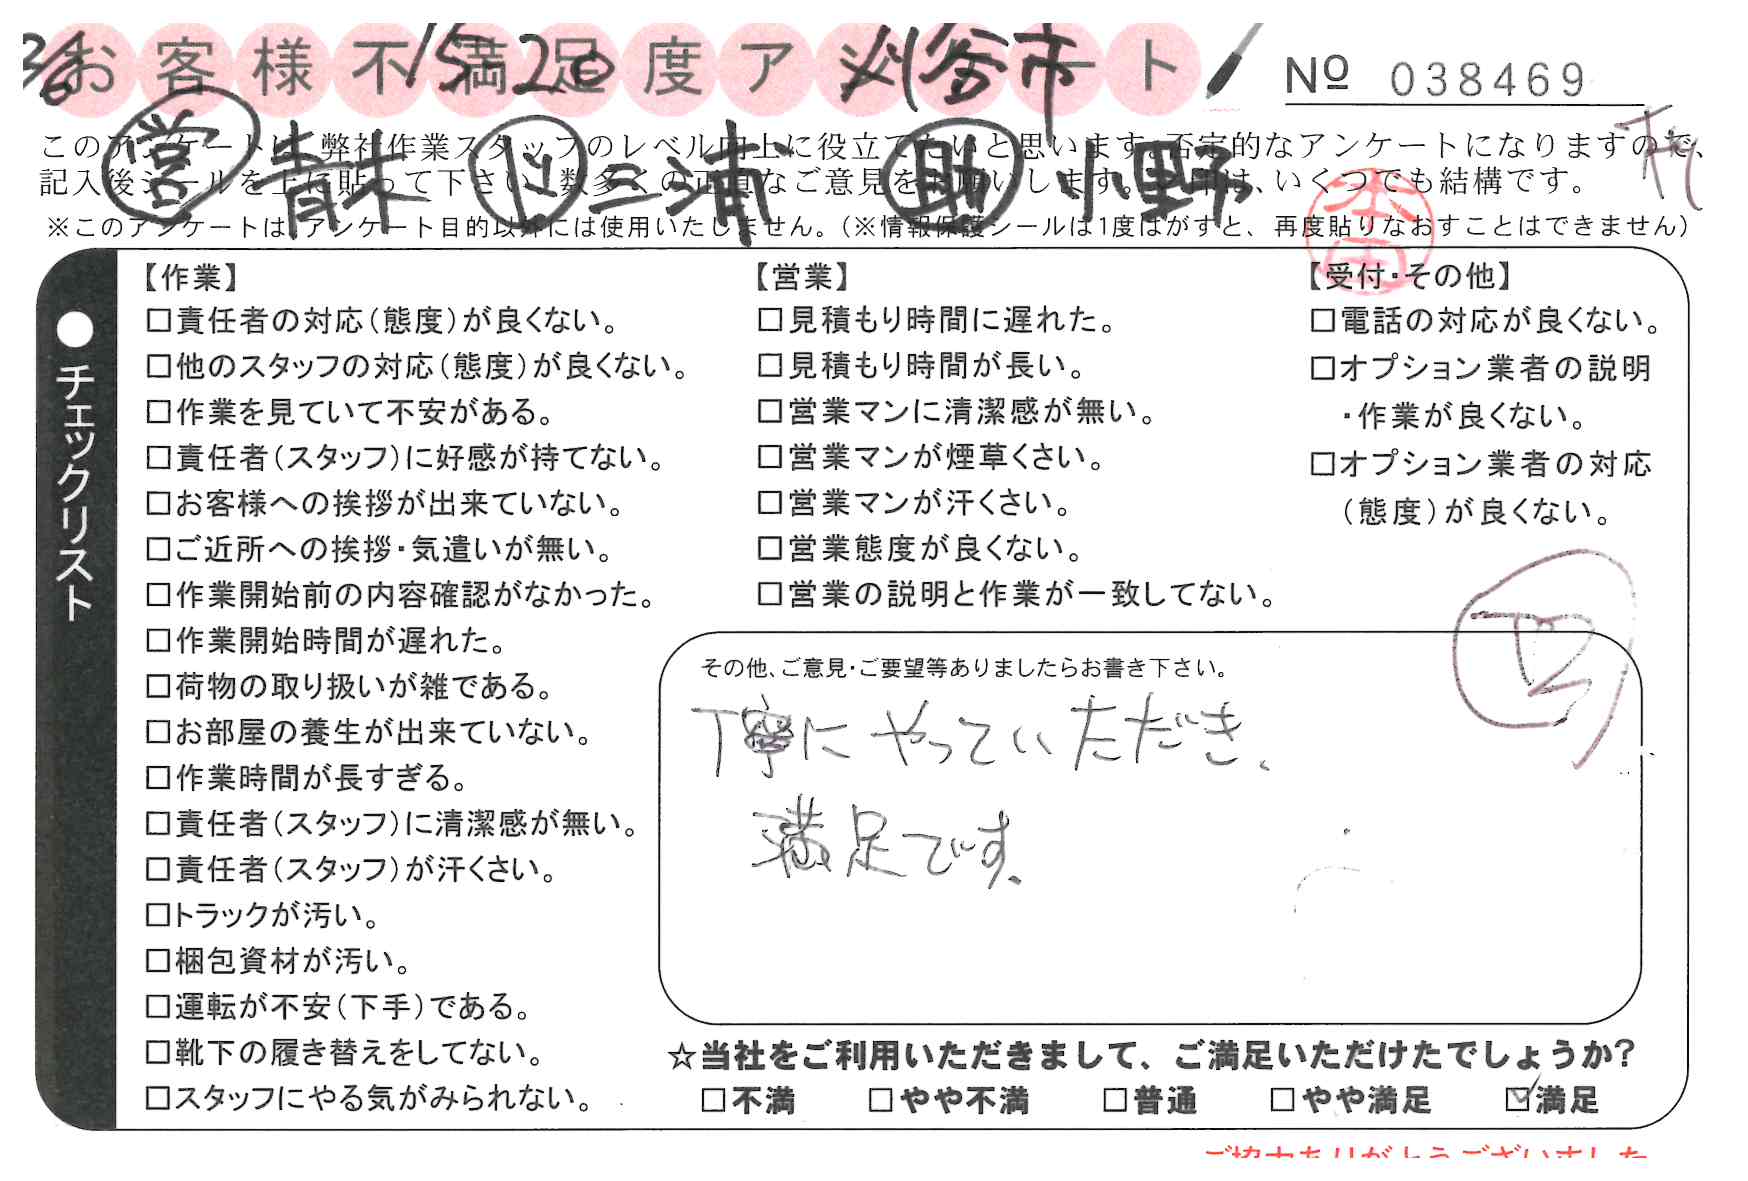 3/6 15-20 刈谷市
お客様不満足度アンケート
№ 038469
営 青木 ド 三浦 助 小野
このアンケートは、弊社作業スタッフのレベル向上に役立てたいと思います。否定的なアンケートになりますので、
記入後シールを上に貼って下さい。数多くの正直なご意見をお願いします。は、いくつでも結構です。
※このアンケートは、アンケート目的以外には使用いたしません。(※情報保護シールは1度はがすと、再度貼りなおすことはできません)
●チェックリスト
【作業】
□責任者の対応(態度)が良くない。
□他のスタッフの対応(態度)が良くない。
□作業を見ていて不安がある。
□責任者(スタッフ)に好感が持てない。
□お客様への挨拶が出来ていない。
□ご近所への挨拶・気遣いが無い。
□作業開始前の内容確認がなかった。
□作業開始時間が遅れた。
□荷物の取り扱いが雑である。
□お部屋の養生が出来ていない。
□作業時間が長すぎる。
□責任者(スタッフ)に清潔感が無い。
□責任者(スタッフ)が汗くさい。
□トラックが汚い。
□梱包資材が汚い。
□運転が不安(下手)である。
□靴下の履き替えをしてない。
□スタッフにやる気がみられない。
【営業】
□見積もり時間に遅れた。
□見積もり時間が長い。
□営業マンに清潔感が無い。
□営業マンが煙草くさい。
□営業マンが汗くさい。
□営業態度が良くない。
□営業の説明と作業が一致してない。
【受付・その他】
□電話の対応が良くない。
□オプション業者の説明
・作業が良くない。
□オプション業者の対応
(態度)が良くない。
その他、ご意見・ご要望等ありましたらお書き下さい。
丁寧にやっていただき、
満足です。
☆当社をご利用いただきまして、ご満足いただけたでしょうか?
□不満 □やや不満 □普通 □やや満足 ☑満足
ご協力ありがとうございました